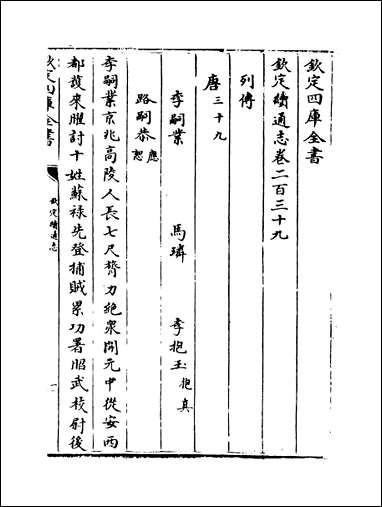 欽定四庫全書
欽定續通志卷二百三十九
列傳
唐三十九
李嗣業 馬璘 李抱玉抱真
路嗣恭應恕
李嗣業京兆高陵人長七尺膂力絶衆開元中從安西
都護來曜討十姓蘇祿先登捕賊累功署昭武校尉後
欽定四庫全書
欽定續通志
一